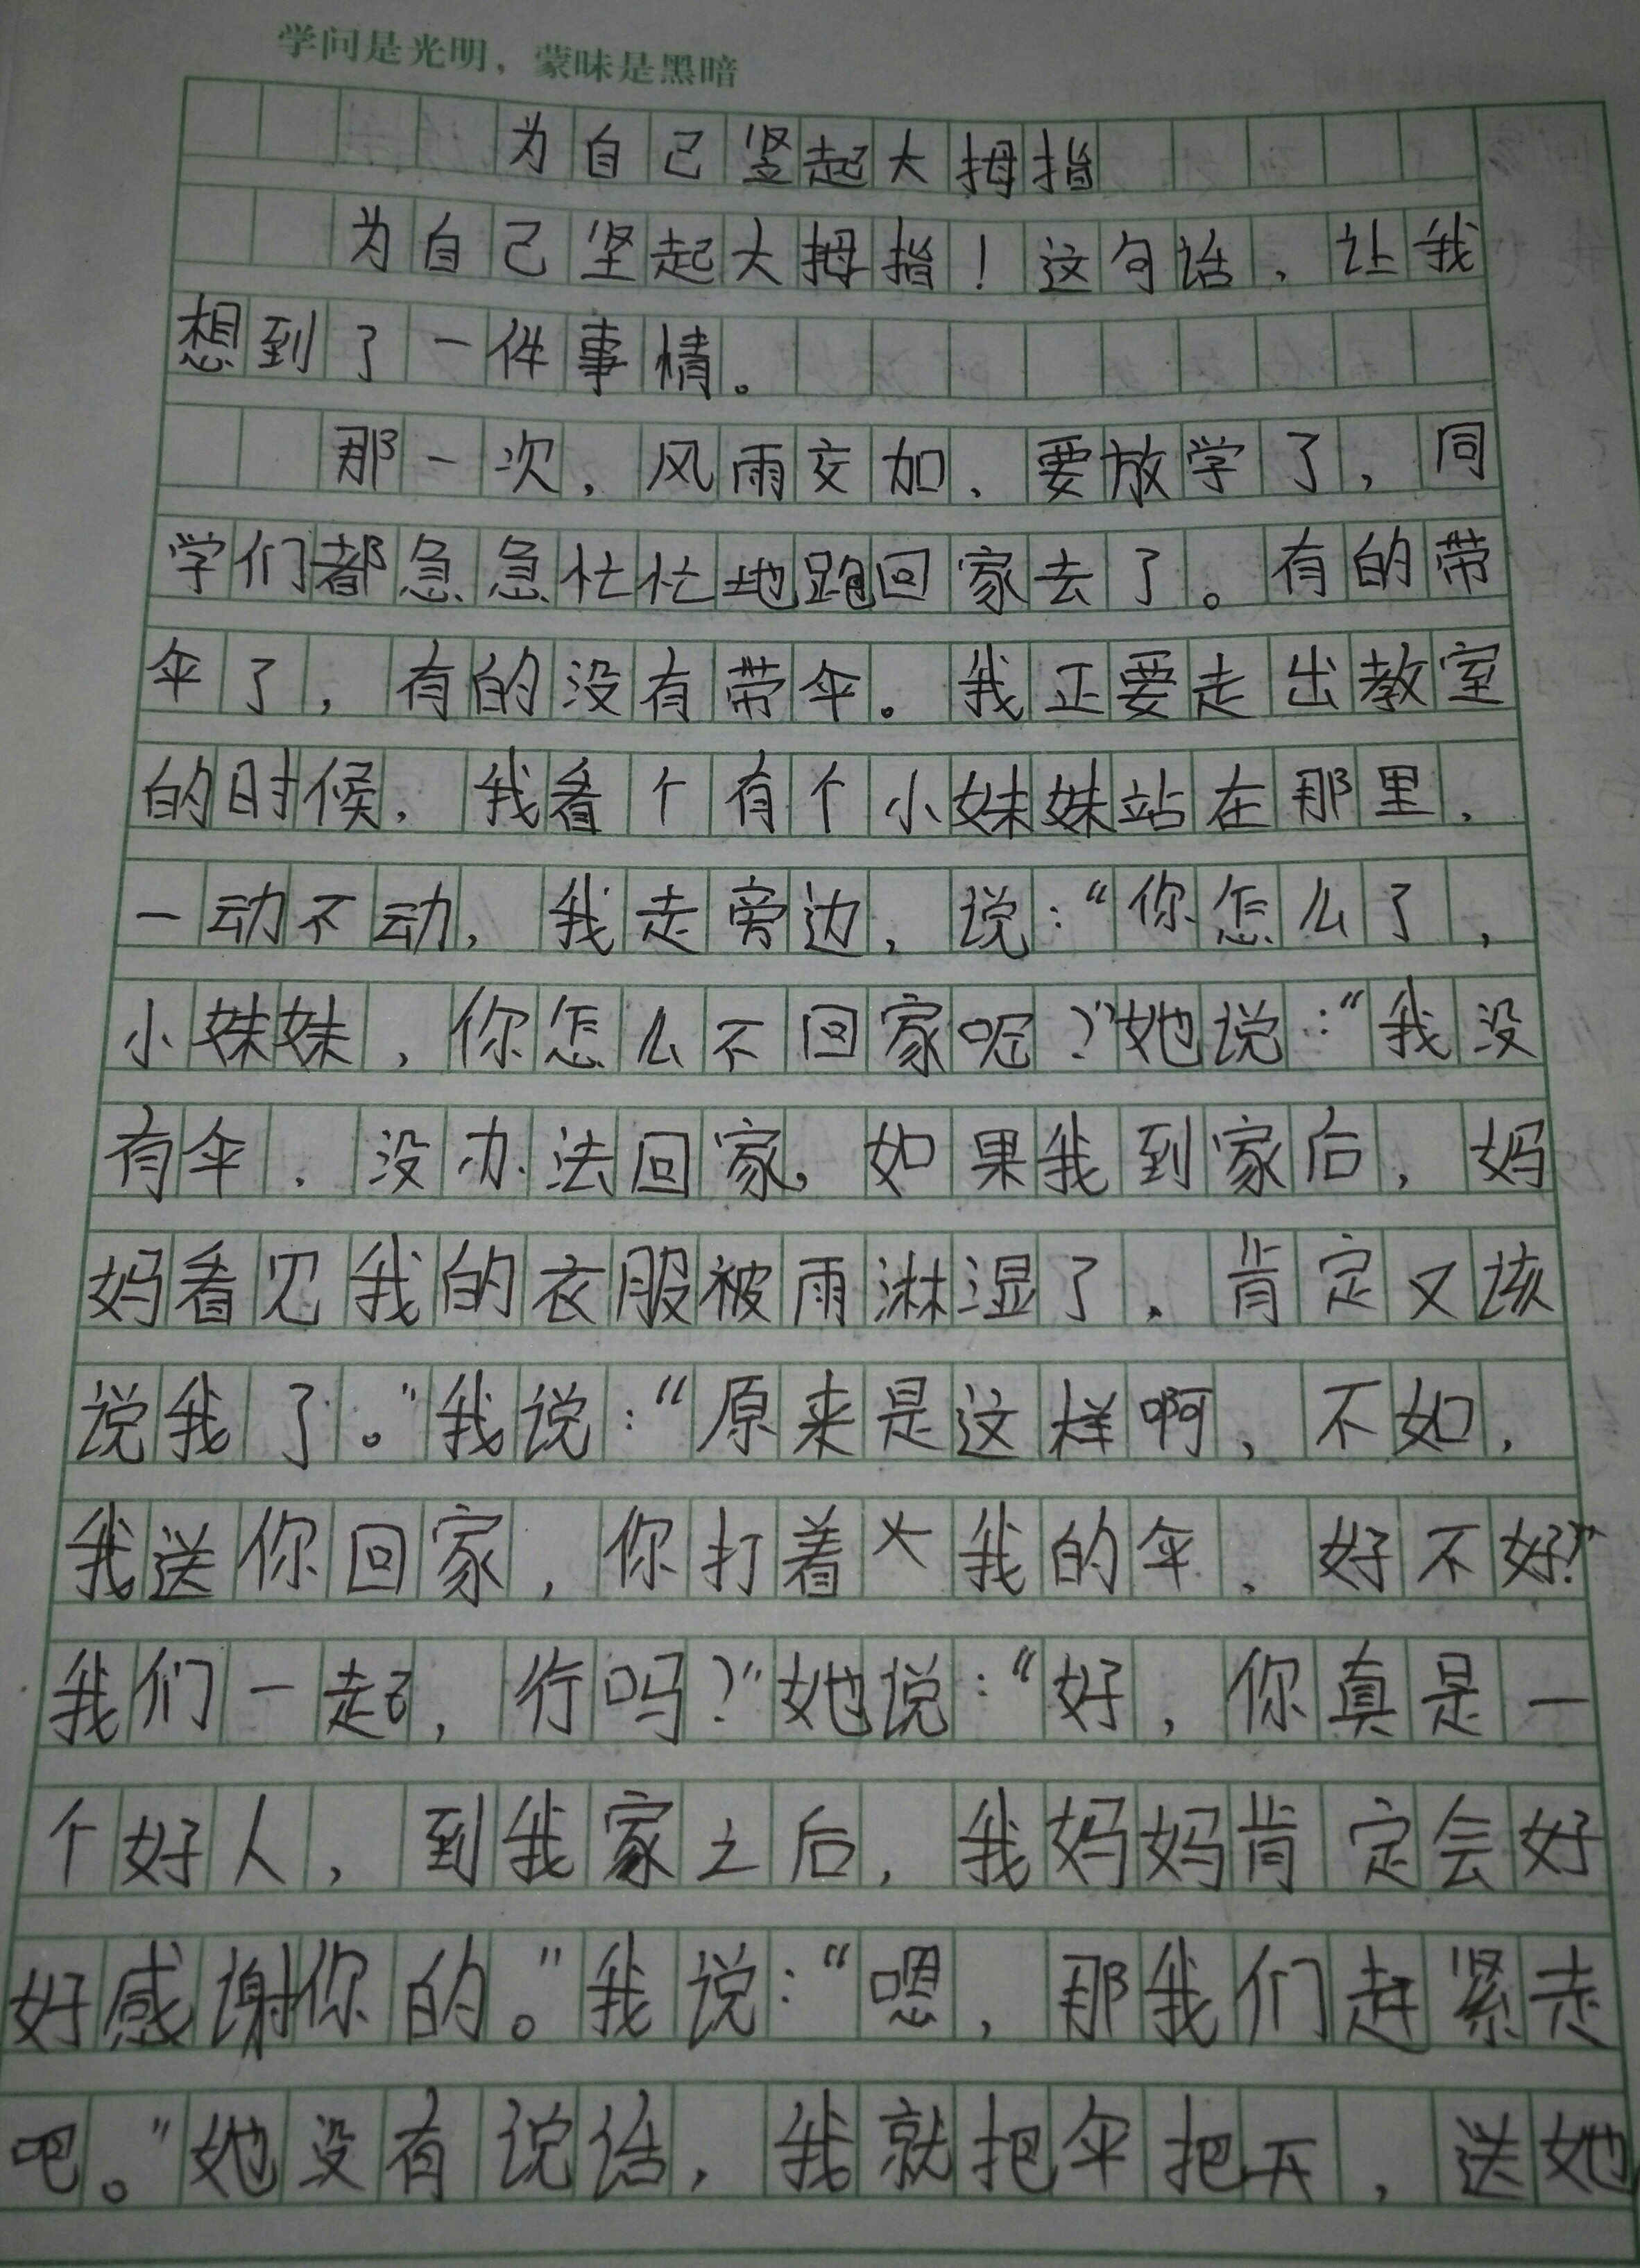 学问是光明，蒙昧是黑暗
为自己竖起大拇指
为自己坚起大拇指！这句话，让我
想到了一件事情。
那一次，风雨交加，要放学了，同
学们都急急忙忙地跑回家去了。有的带
伞了，有的没有带伞。我正要走出教室
的时候，我看个有个小妹妹站在那里，
一动不动，我走旁边，说：“你怎么了，
小妹妹，你怎么不回家呢？”她说：“我没
有伞，没办法回家，如果我到家后，妈
妈看见我的衣服被雨淋湿了，肯定又该
说我了。”我说：“原来是这样啊，不如，
我送你回家，你打着我的伞，好不好？”
我们一起，行吗？”她说：“好，你真是一
个好人，到我家之后，我妈妈肯定会好
好感谢你的。”我说：“嗯，那我们赶紧走
吧。”她没有说话，我就把伞把开，送她